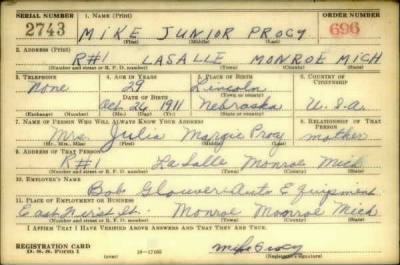 SERIAL NUMBER 1. NAME (Print) ORDER NUMBER
2743 MIKE JUNIOR PROCY 696
(First) (Middle) (Last)
2. ADDRESS (Print)
R#1 LASALLE MONROE MICH
(Number and street or R. F. D. number) (Town) (County) (State)
3. TELEPHONE 4. AGE IN YEARS 5. PLACE OF BIRTH 6. COUNTRY OF CITIZENSHIP
None 29 Lincoln
DATE OF BIRTH (Town or county)
Oct 26 1911 Nebraska U.S.A.
(Exchange) (Number) (Mo.) (Day) (Yr.) (State or country)
7. NAME OF PERSON WHO WILL ALWAYS KNOW YOUR ADDRESS 8. RELATIONSHIP OF THAT PERSON
Mrs. Julia Margie Procy mother
(Mr., Mrs., Miss) (First) (Middle) (Last)
9. ADDRESS OF THAT PERSON
R#1 LaSalle Monroe Mich
(Number and street or R. F. D. number) (Town) (County) (State)
10. EMPLOYER'S NAME
Bob Glouver Auto Equipment
11. PLACE OF EMPLOYMENT OR BUSINESS
East First St. Monroe Monroe Mich
(Number and street or R. F. D. number) (Town) (County) (State)
I AFFIRM THAT I HAVE VERIFIED ABOVE ANSWERS AND THAT THEY ARE TRUE.
REGISTRATION CARD
D. S. S. Form 1 16-17105 Mike Procy
(over) (Registrant's signature)